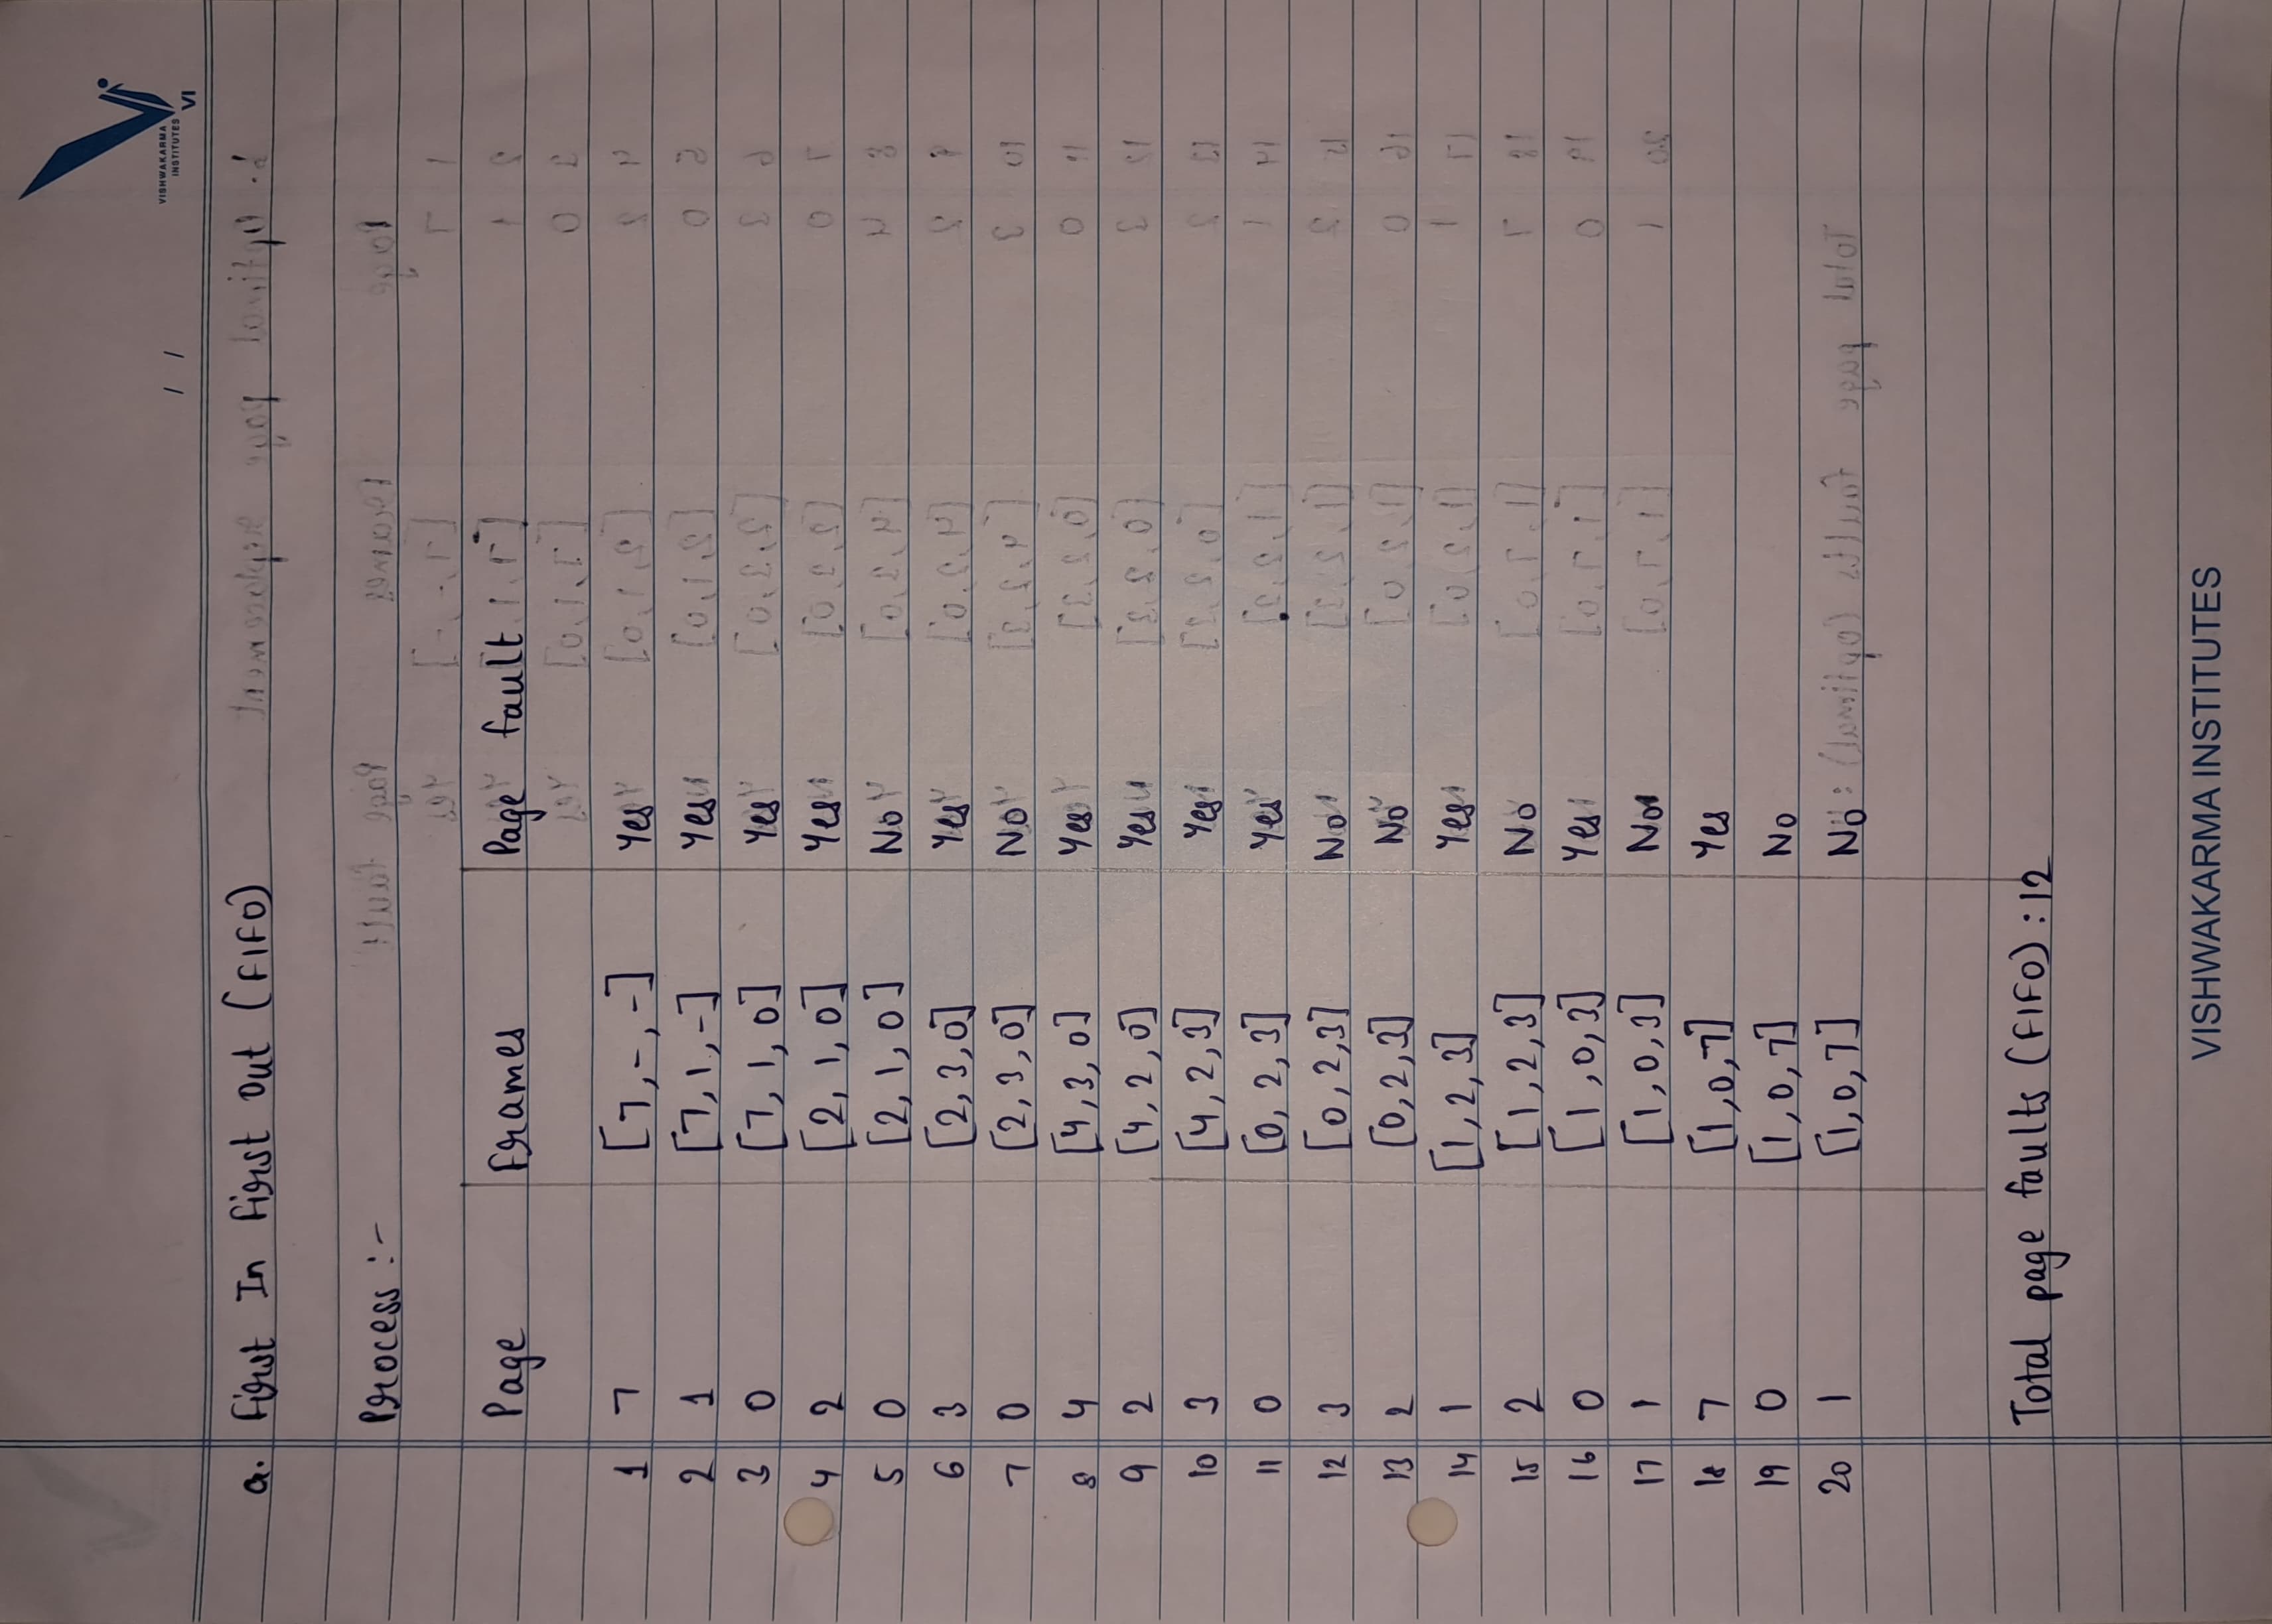 VISHWAKARMA
INSTITUTES
VI
/ /
a. First In First Out (FIFO)
Process :-
Page Frames Page fault
1 7 [7,-,-] Yes
2 1 [7,1,-] Yes
3 0 [7,1,0] Yes
4 2 [2,1,0] Yes
5 0 [2,1,0] No
6 3 [2,3,0] Yes
7 0 [2,3,0] No
8 4 [4,3,0] Yes
9 2 [4,2,0] Yes
10 3 [4,2,3] Yes
11 0 [0,2,3] Yes
12 3 [0,2,3] No
13 2 [0,2,3] No
14 1 [1,2,3] Yes
15 2 [1,2,3] No
16 0 [1,0,3] Yes
17 1 [1,0,3] No
18 7 [1,0,7] Yes
19 0 [1,0,7] No
20 1 [1,0,7] No
Total page faults (FIFO) : 12
VISHWAKARMA INSTITUTES